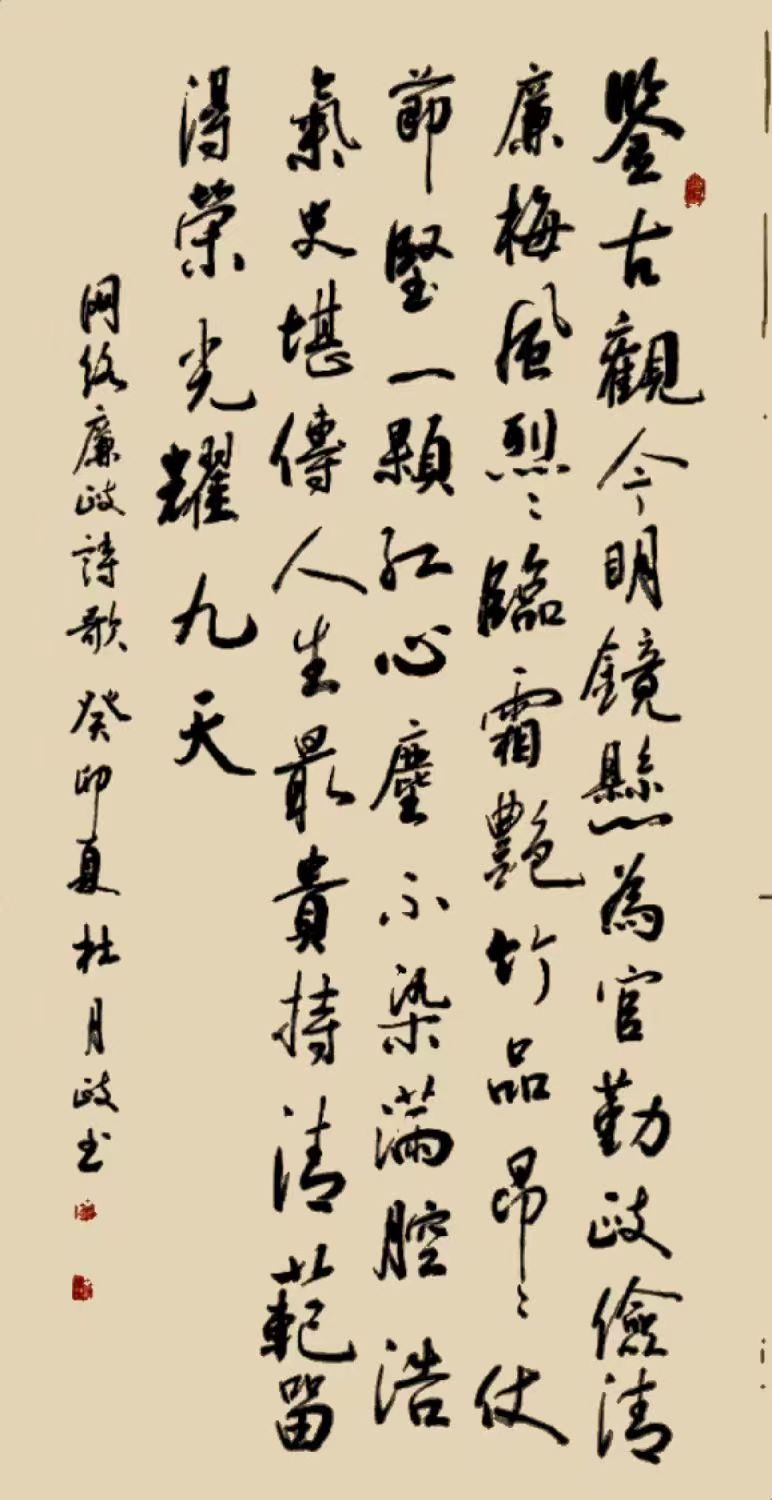 鉴古觀今明鏡懸為官勤政儉清
廉梅風烈〻臨霜艷竹品昂〻仗
節堅一顆紅心塵不染滿腔浩
氣史堪傳人生最貴持清範留
得榮光耀九天
网络廉政詩歌癸卯夏杜月政书